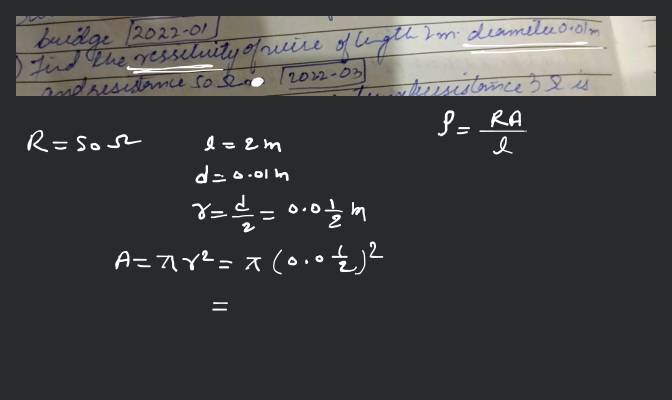 bridge [2022-01]
) Find the resselivity of wire of length 2m. diameter 0.01m
and resistance 50 Ω. [2022-03]
resistance 3 Ω is
R = 50 Ω
l = 2m
ρ = RA/l
d = 0.01m
r = d/2 = 0.01/2 m
A = πr² = π (0.01/2)²
=